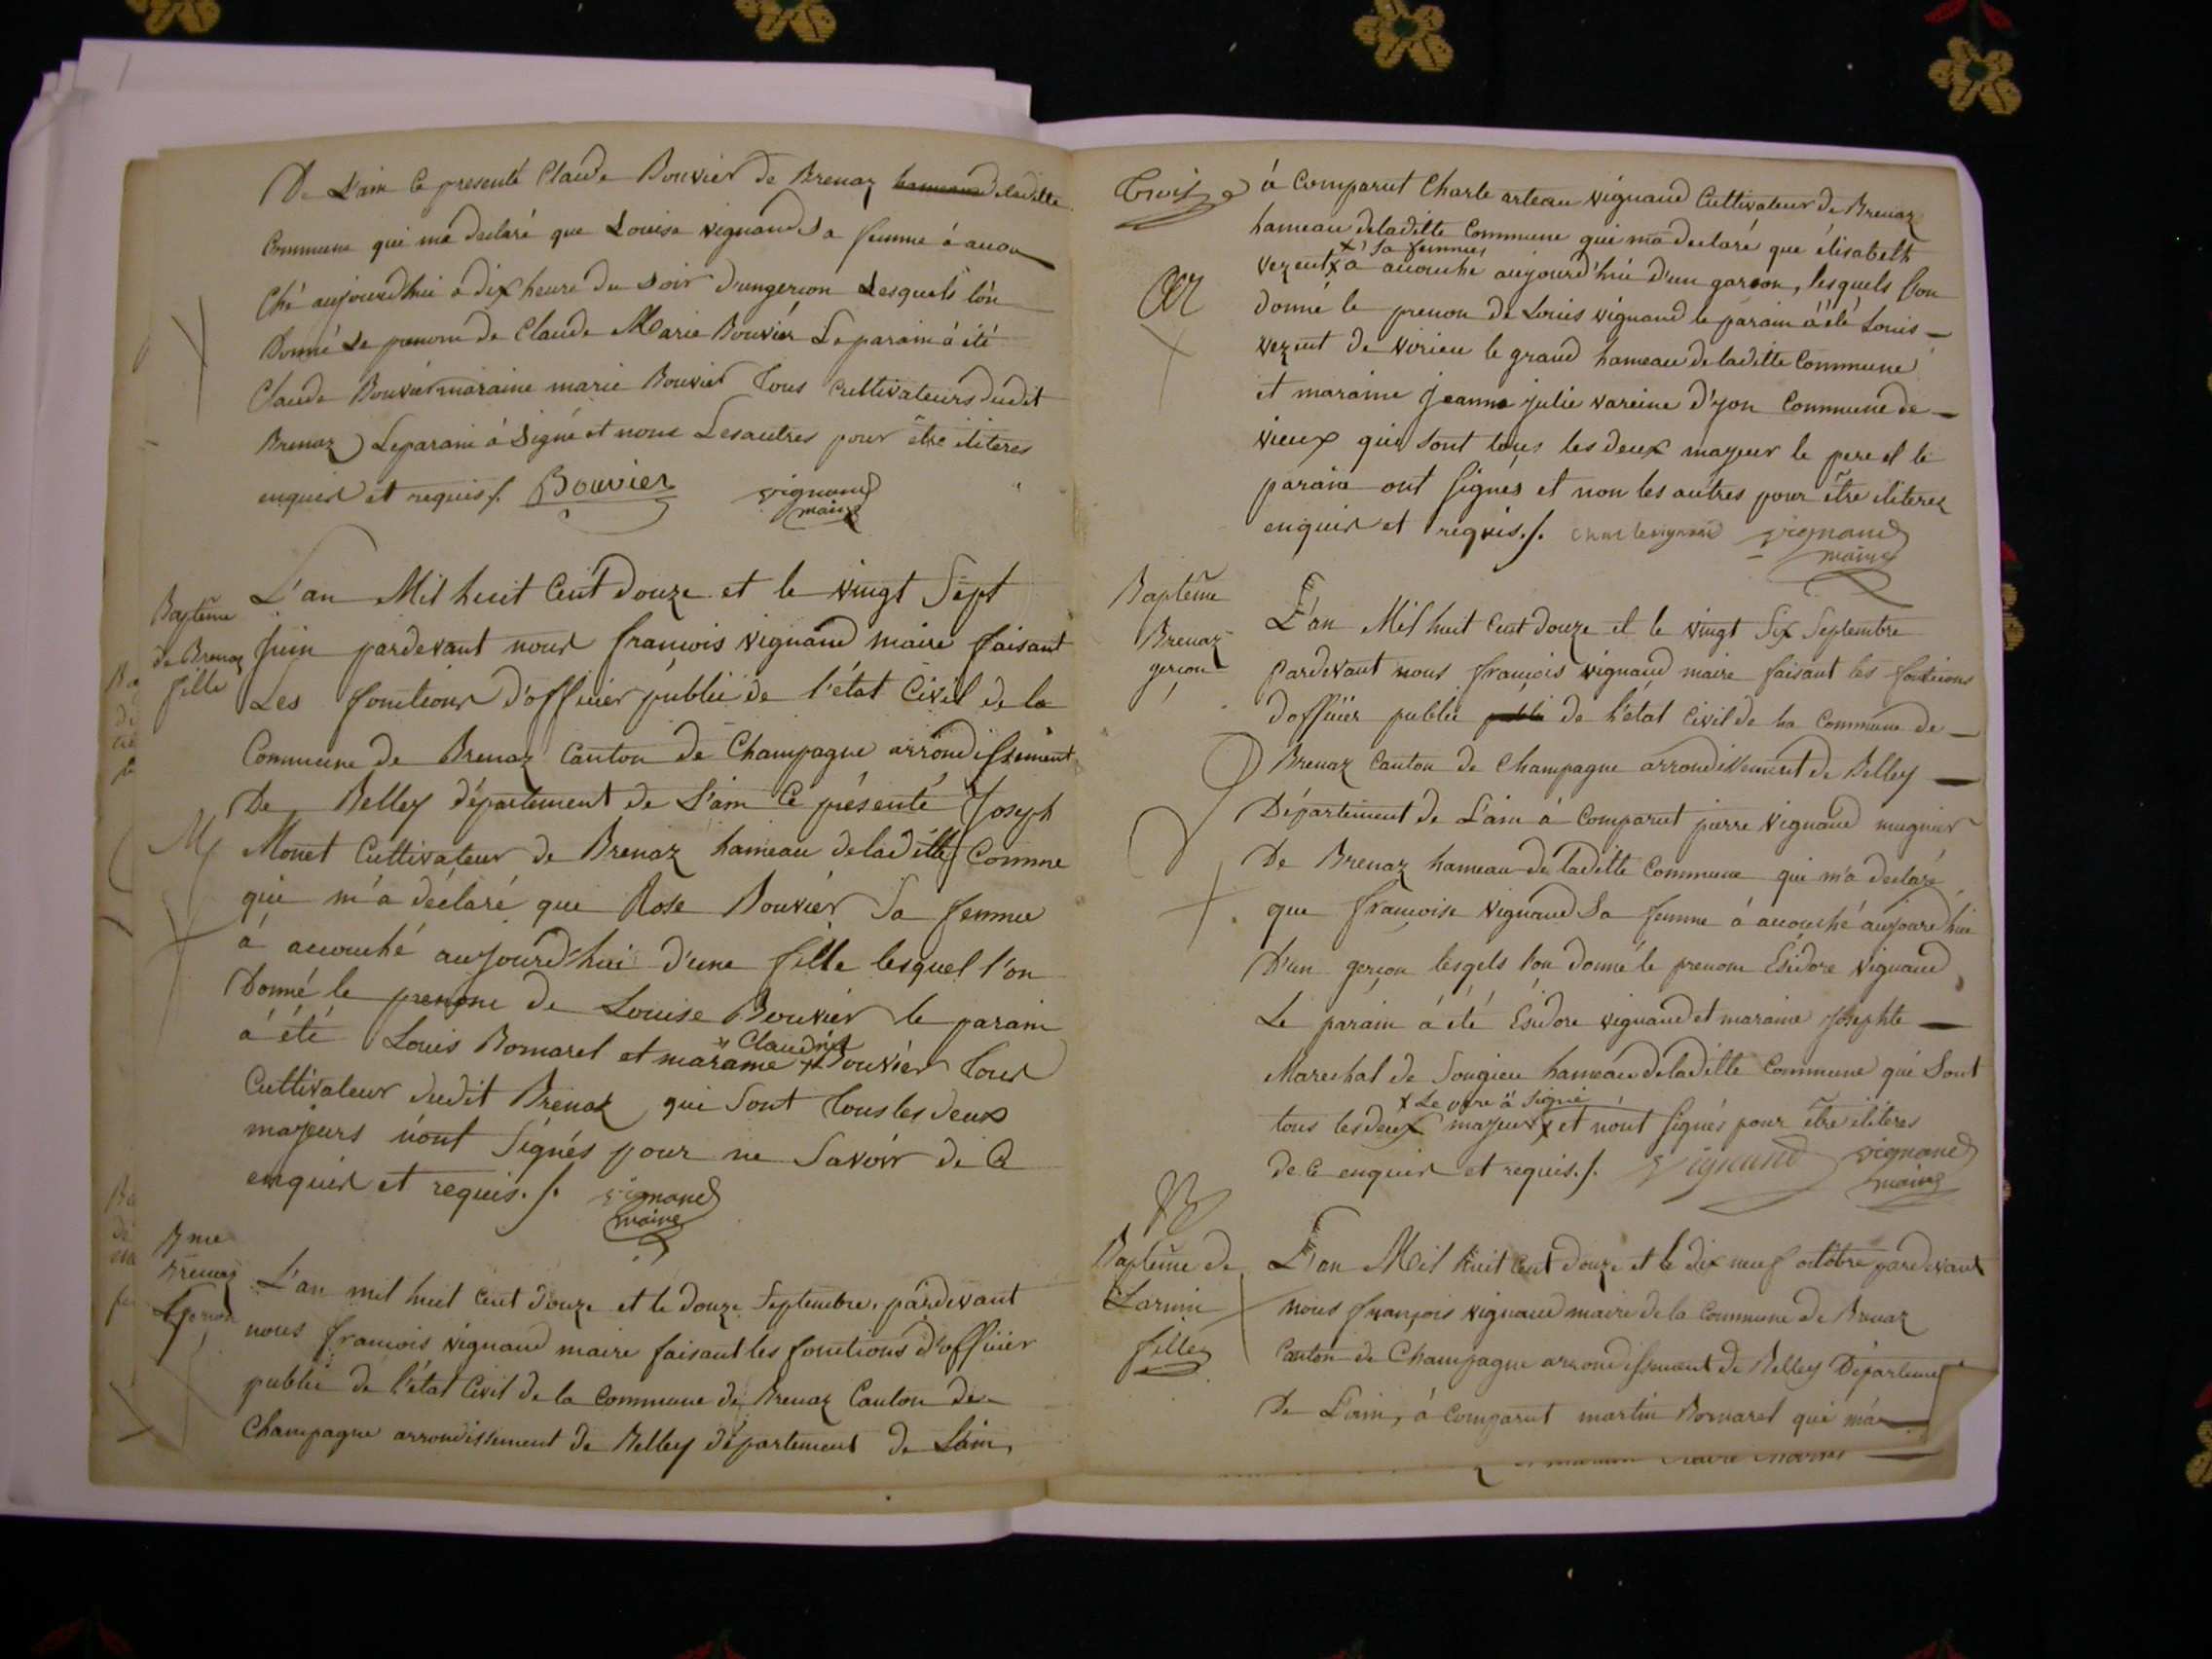 De L'ain Ce presenté Claude Bouvier de Brenaz hameau deladitte
Commune qui ma declaré que Louise vignand Sa femme á accou
Ché aujourdhui á dix heure du Soir dungerson Lesquels lón
Donné Le prenom de Claude Marie Bouvier Le parain á été
Claude Bouvier maraine marie Bouvier tous Cultivateurs dudit
Brenaz Leparain á Signé et nons Les autres pour être iliteres
enquir et requis /. Bouvier vignand
maire
Baptême
de Brenaz
fille
L'an Mil huit Cent Douze et le Vingt Sept
Juin pardevant nous francois vignand maire faisant
Les fonctions d'officier public de l'état Civil de la
Commune de Brenaz Canton de Champagne arrondissement
De Belley département de L'ain Ce présenté Joseph
Monet Cultivateur de Brenaz hameau deladitte Comme
qui m'a déclaré que Rose Bouvier Sa femme
á accouché aujourd'hui d'une fille lesquel l'on
Donné le prenom de Louise Bouvier le parain
á été Louis Bomarel et maraine x Bouvier tous
Cultivateur dudit Brenaz qui Sont tous les deux
majeurs n'ont Signés pour ne Savoir de Ce
enquir et requis. /. vignand
maire
Bme
Brenaz
gerson
L'an mil huit Cent douze et le douze Septembre, pardevant
nous francois vignand maire faisant les fonctions d'officier
public de l'état Civil de la Commune de Brenaz Canton de
Champagne arrondissement de Belley département de Lain,
trois
á Comparut Charle arteau vignand Cultivateur de Brenaz
hameau deladitte Commune qui ma declaré que élisabeth
x Sa femme
vezent x a accouche aujourd'hui d'un garson, lesquels l'on
donné le prenon de Louis vignand le parain á été Louis
vezent de Virieu le grand hameau de laditte Commune
et maraine Jeanne julie vareine d'yon Commune de
vieux qui sont tous les deux majeur le pere et le
parain ont Signés et non les autres pour être iliteres
enquir et requis. /. Charle vignand vignand
maire
Baptême
Brenaz
gerçon
L'an Mil huit Cent douze et le vingt Six Septembre
pardevant nous françois vignand maire faisant les fonctions
dofficier public publi de l'état Civil de la Commune de
Brenaz Canton de Champagne arrondissement de Belley
Département de L'ain á Comparut pierre Vignand mugnier
De Brenaz hameau de laditte Commune qui m'a declaré
que françoise Vignand Sa femme á accouché aujourdhui
D'un gerçon lesqels l'on donné le prenom Esidore vignand
Le parain á été Esidore vignand et maraine Josephte
Marechal de Songieu hameau deladitte Commune qui Sont
x Le pere á Signé
tous les deux majeur x et n'ont Signés pour être iliteres
de Ce enquir et requis. /. Vignand vignand
maire
Baptême de
Larnin
fille
L'an Mil huit Cent douze et le dix neuf octobre pardevant
nous françois vignand maire de la Commune de Brenaz
Canton de Champagne arrondissement de Belley Departeme
De L'ain, á Comparut martin Bomarel qui m'a